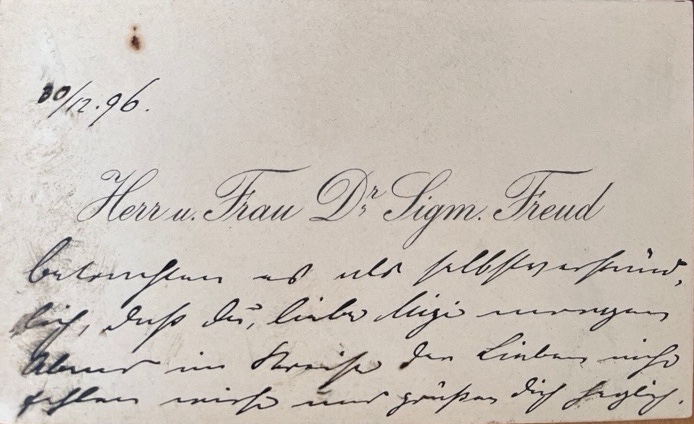 30/12.96.
Herr u. Frau Dr Sigm. Freud
betrachten es als selbstverständ-
lich, daß du, liebe Mizi morgen
Abend im Kreise der Lieben nicht
fehlen wirst und grüßen dich herzlich.